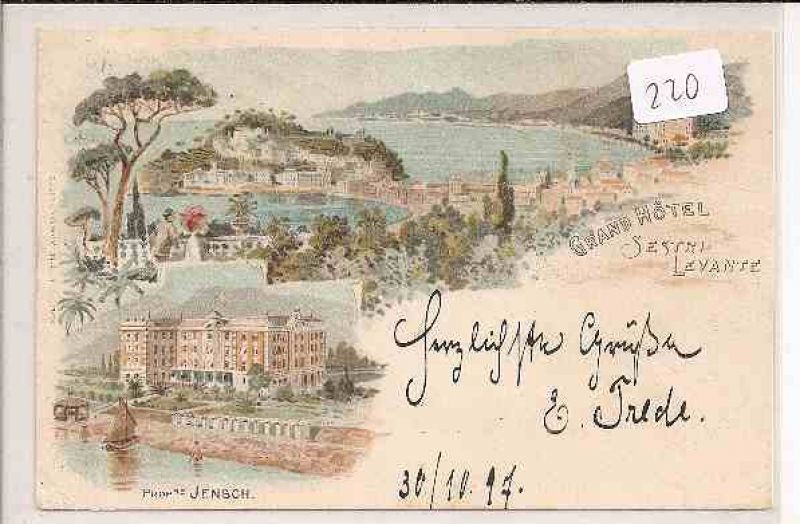 220
GRAND HÔTEL
SESTRI
LEVANTE
Herzlichste Grüße
E. Trede.
30/10.97.
PROPRE JENSCH.